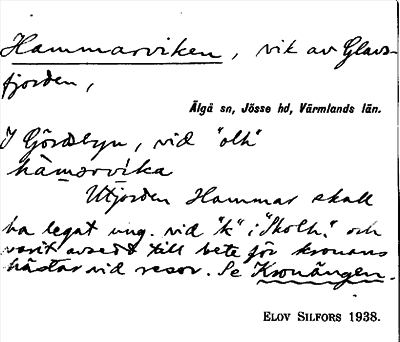 Hammarviken, vik av Glavs-
fjorden,
Älgå sn, Jösse hd, Värmlands län.
I Gördsbyn, vid "olh"
hàmərvika
Utjorden Hammar skall
ha legat ung. vid "k" i "Skolh." och
varit avsedt till bete för kronans
hästar vid resor. Se Kronängen.
ELOV SILFORS 1938.